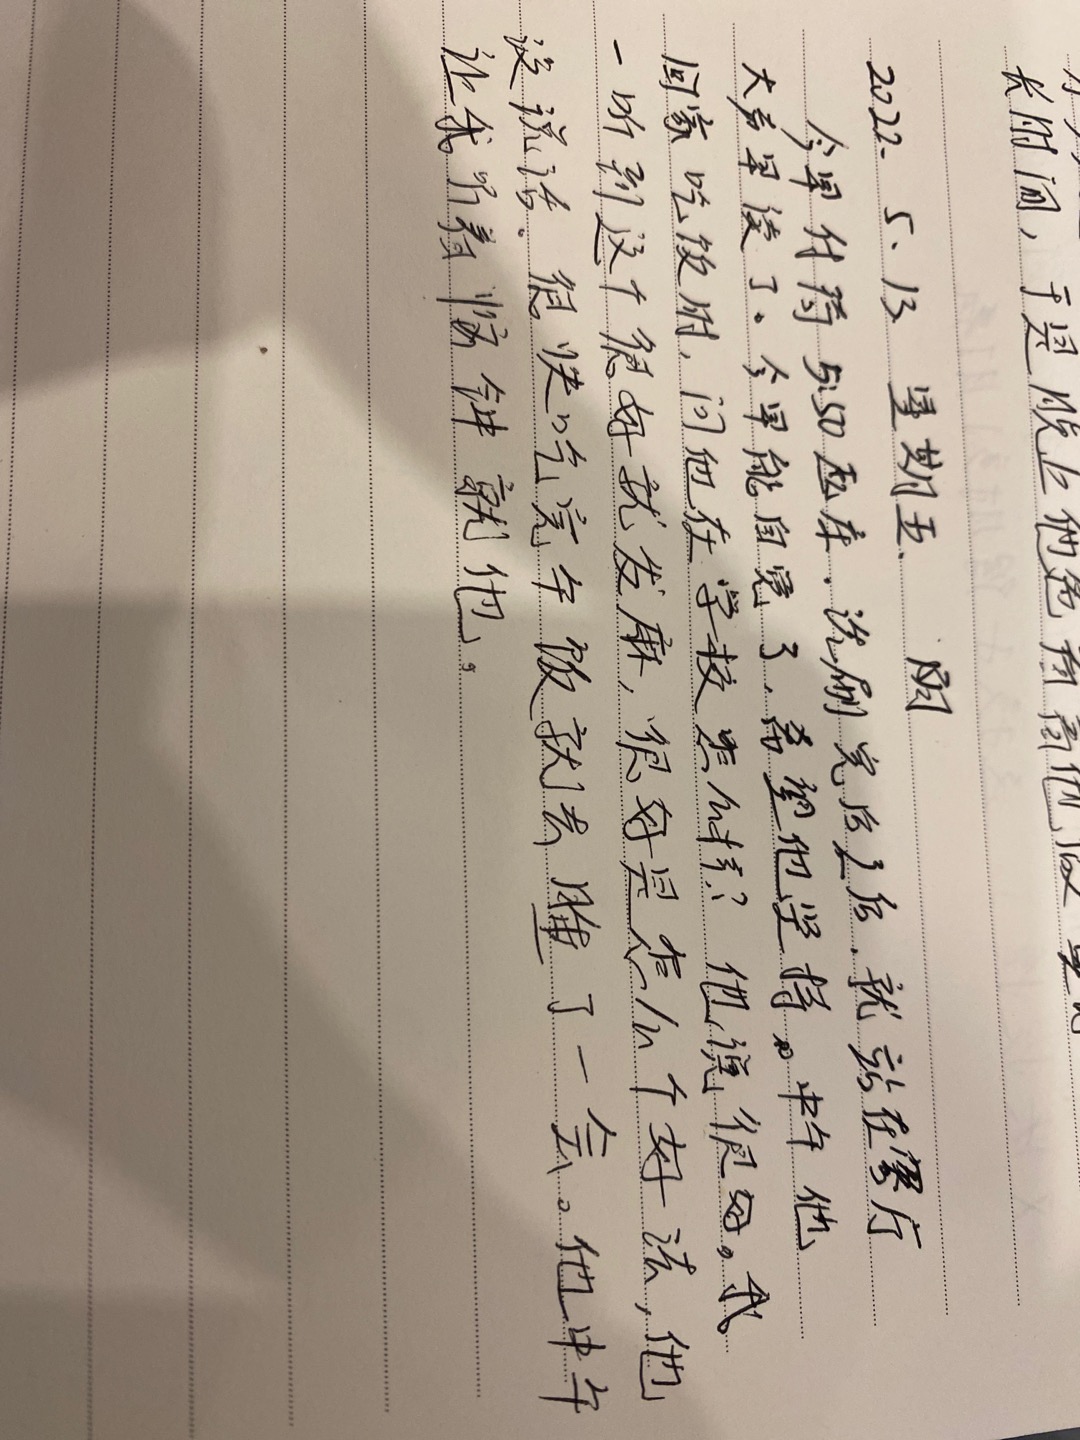 长时间，于是晚上他爸
2022. 5. 13 星期五. 阴
今早付 5:50起床. 洗刷完后之后. 就站在客厅
大声早读了。今早能自觉了. 希望他坚持。中午他
回家吃饭时, 问他在学校怎么样? 他说很好。我
一听到这个很好就发麻, 很好是怎么个好法, 他
没说话. 很快吃完午饭就去睡了一会。他中午
让我早着闹钟就他。